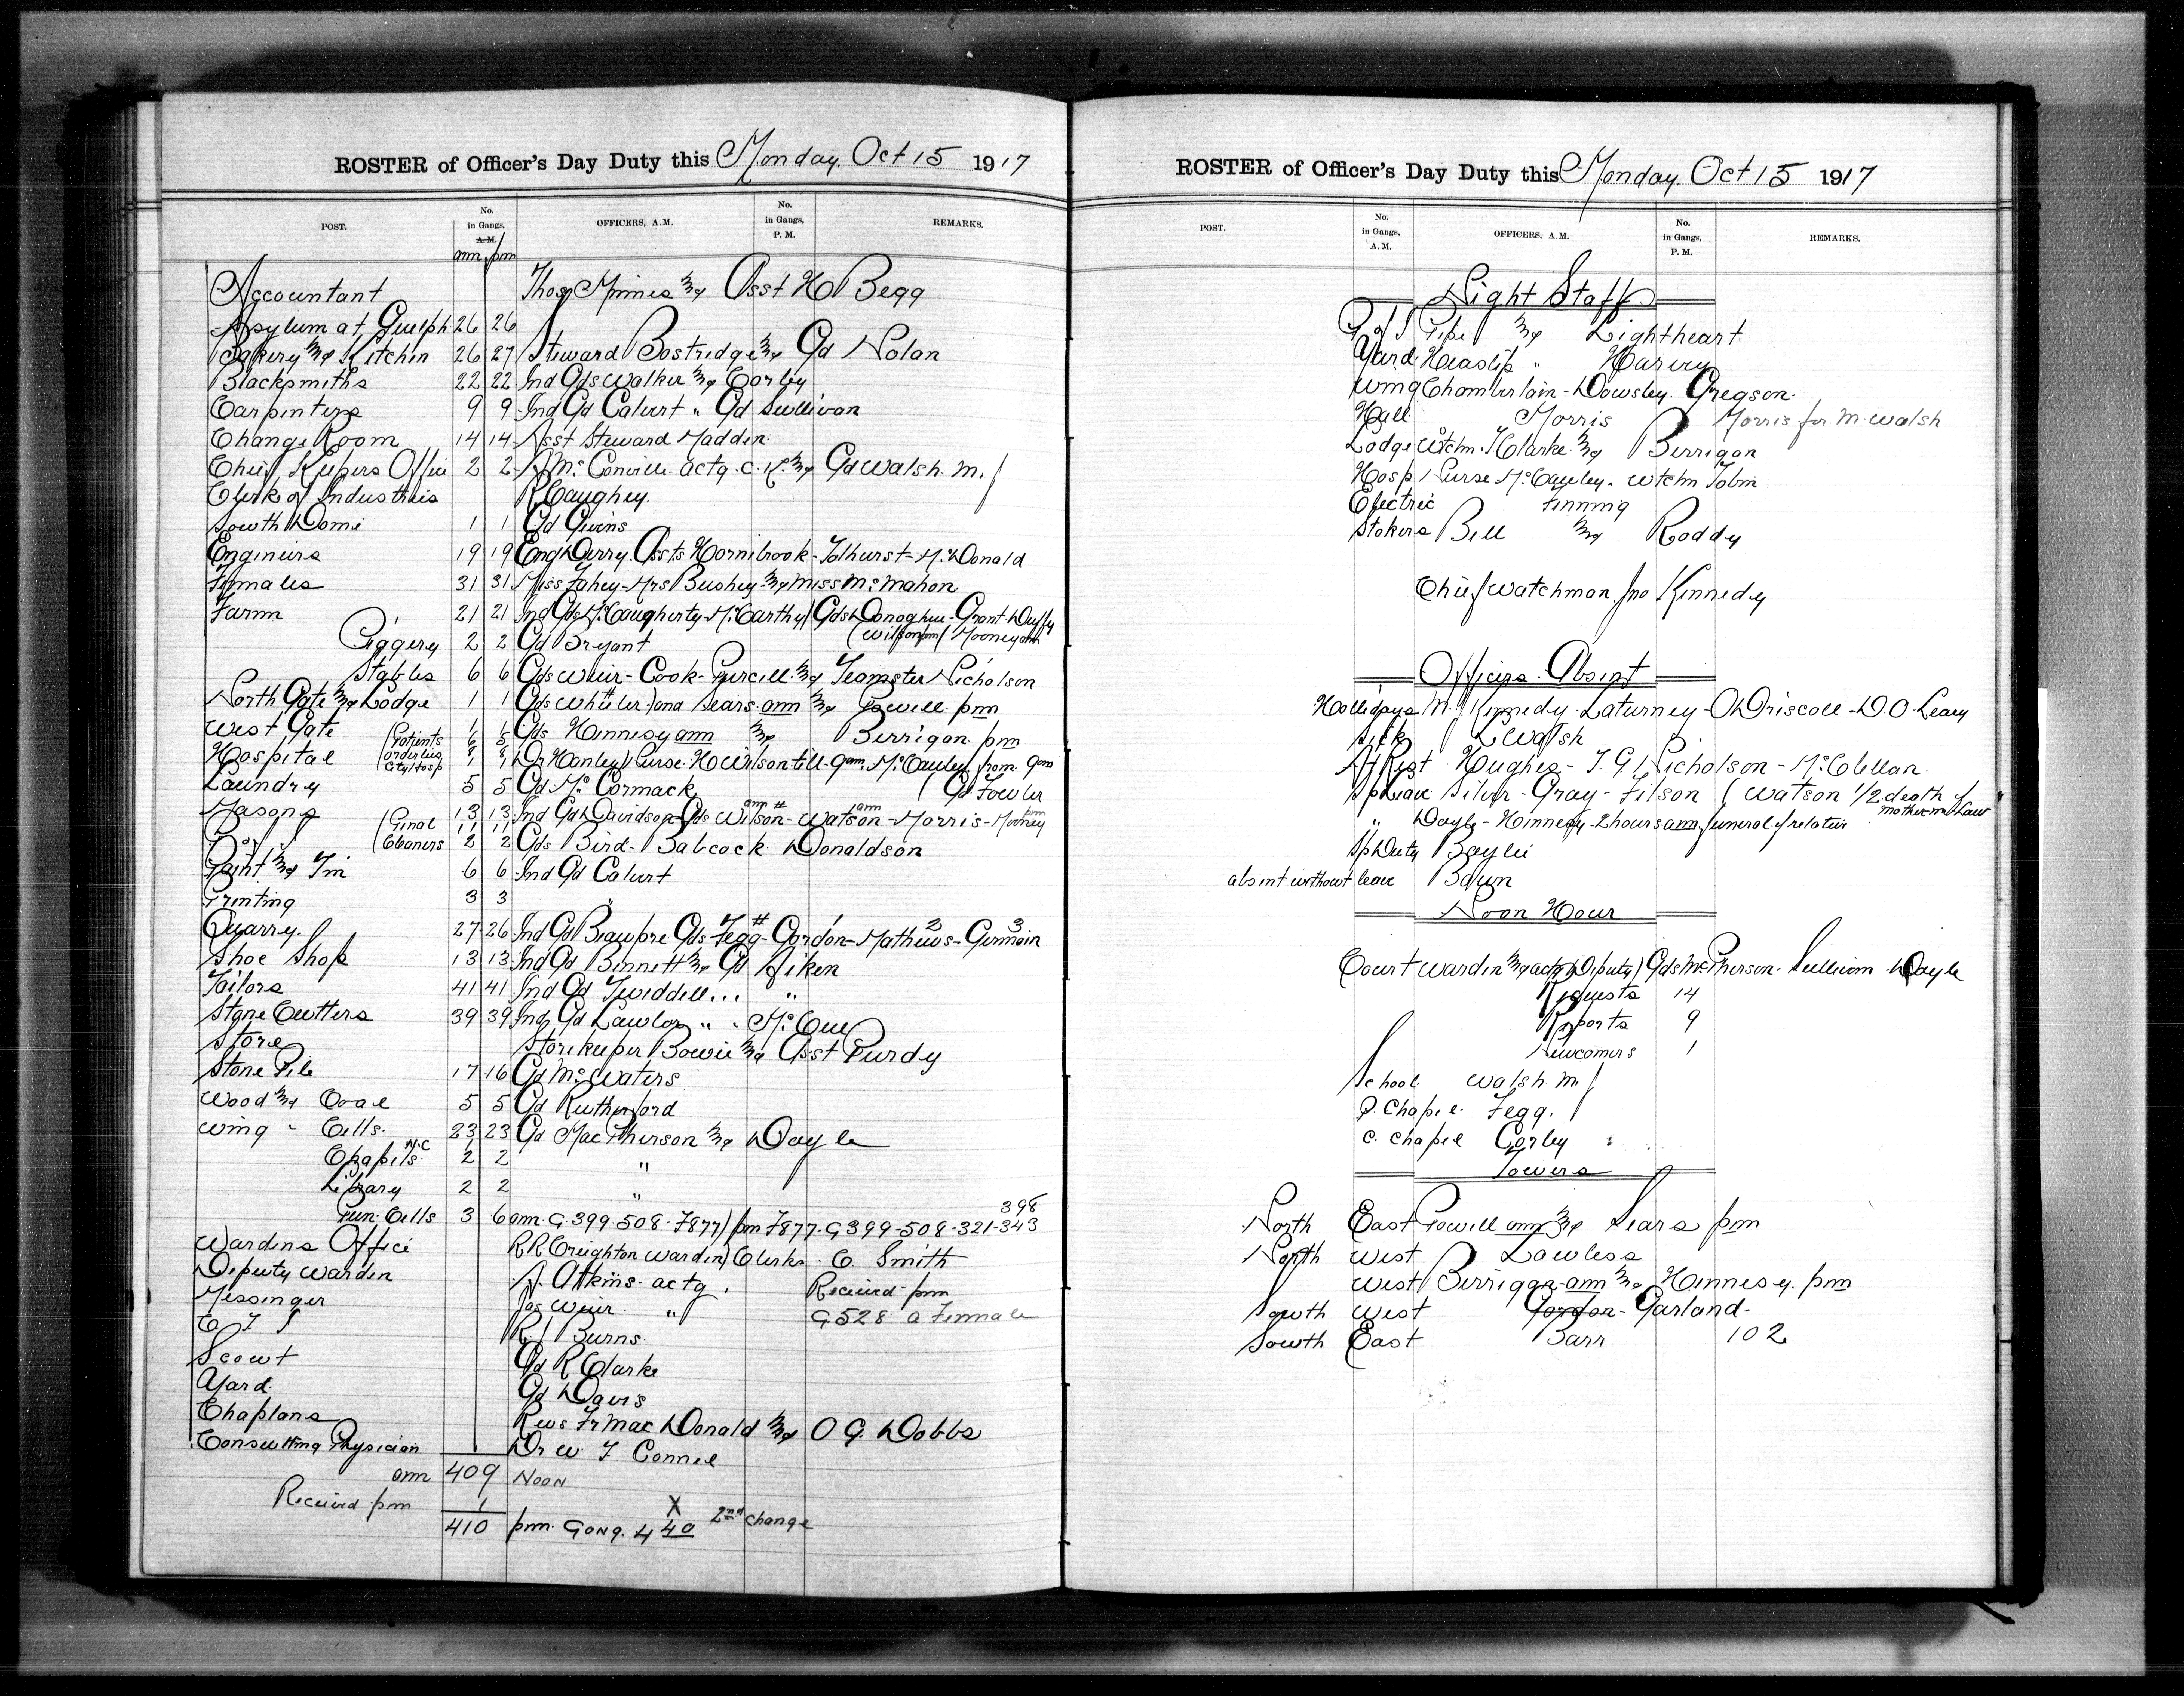 ROSTER of Officer's Day Duty this Monday Oct 15 1917
POST. No. in Gangs, A.M. OFFICERS, A.M. No. in Gangs, P.M. REMARKS.
am pm
Accountant Thos Mimes & Asst H Begg
Asylum at Guelph 26 26
Bakery & Kitchen 26 27 Steward Bostridge & Gd Nolan
Blacksmiths 22 22 Ind Gds Walker & Corley
Carpenters 9 9 Ind Gd Calvert " Gd Sullivan
Change Room 14 14 Asst Steward Madden
Chief Keepers Office 2 2 A McConville actg. C. K. & Gd Walsh. M. J
Clerk of Industries R Caughey.
South Dome 1 1 Gd Givens
Engineers 19 19 Eng Derry. Assts Hornibrook - Tolhurst - McDonald
Females 31 31 Miss Fahey - Mrs Bushey & Miss McMahon
Farm 21 21 Ind Gds McCaugherty - McCarthy / Gds Donoghue - Grant - Duffy
(Wilson pm / Mooney am
Piggery 2 2 Gd Bryant
Stables 6 6 Gds Weir - Cook - Purcell & Teamster Nicholson
North Gate & Lodge 1 1 Gds Wheeler) and Sears am & Powell pm
West Gate 1 1 Gds Hennesy am & Berrigan pm
Hospital (Patients 6 5
(Orderlies 8 8 Dr Hanley / Nurse H Wilson till 9am. McCauley from 9am
City Hosp 1 1
Laundry 5 5 Gd McCormack ( Gd Fowler
Masons 13 13 Ind Gd Davidson - Gds Wilson am # - Watson am - Morris - Mooney pm
(Penal 11 11
(Cleaners 2 2 Gds Bird - Babcock Donaldson
Paint & Tin 6 6 Ind Gd Calvert
Printing 3 3 "
Quarry. 27 26 Ind Gd Beaupre Gds Fegg # - Gordon - Mathews 3 - Germain 3
Shoe Shop 13 13 Ind Gd Bennett & Gd Aiken
Tailors 41 41 Ind Gd Tweddell... "
Stone Cutters 39 39 Ind Gd Lawlor " . McCue
Store Storekeeper Bowie & Asst Purdy
Stone Pile 17 16 Gd McWaters
Wood & Coal 5 5 Gd Rutherford
Wing - Cells. 23 23 Gd MacPherson & Doyle
Chapels 2 2 "
Library 2 2 "
398
Pun. Cells 3 6 am. G 399 - 508 - F877) pm F877 - G399 - 508 - 321 - 343
Wardens Office R R Creighton Warden) Clerks . C. Smith
Deputy Warden A. Atkins actg. Received pm
Messenger Jas Weir " G528 a Female
C T S R J Burns
Scout Gd R Clarke
Yard Gd Davis
Chaplans Revs Fr MacDonald & O G. Dobbs
Consulting Physician Dr W. T Connel
am 409 Noon
Received pm 1
410 pm Gong. 4 40 X 2nd change
ROSTER of Officer's Day Duty this Monday Oct 15 1917
POST. No. in Gangs, A.M. OFFICERS, A.M. No. in Gangs, P.M. REMARKS.
Night Staff
P of S Pipe & Lightheart
Yard Heaslip " Harvey
Wing Chamberlain - Dowsley. Gregson.
Hall Morris Morris for M. Walsh
Lodge Wtchm. Clarke & Berrigan
Hosp Nurse McCauley. Wtchm Tobin
Electric Finning
Stokers Bell & Roddy
Chief Watchman Jno Kennedy
Officers Absent
Hollidays M. J Kennedy - Laturney - O Driscoll - D. O. Leary
Sick L Walsh
N F Rest Hughes - T. G. Nicholson - McClellan
Sp Leave Silver - Gray - Filson ( Watson 1/2 death of mother-in-law
" Doyle - Hennesy 2 hours am funeral of relative
Sp Duty Baylie
absent without leave Bawn
Noon Hour
Court Warden & actg Deputy / Gds McPherson - Sullivan Doyle
Requests 14
Reports 9
Newcomers 1
School Walsh. M J
P. Chapel Fegg.
C. Chapel Corley
Towers
North East Powell am & Sears pm
North West Lawless
West Berrigan am & Hennesy. pm
South West Gordon - Garland -
South East Barr 102